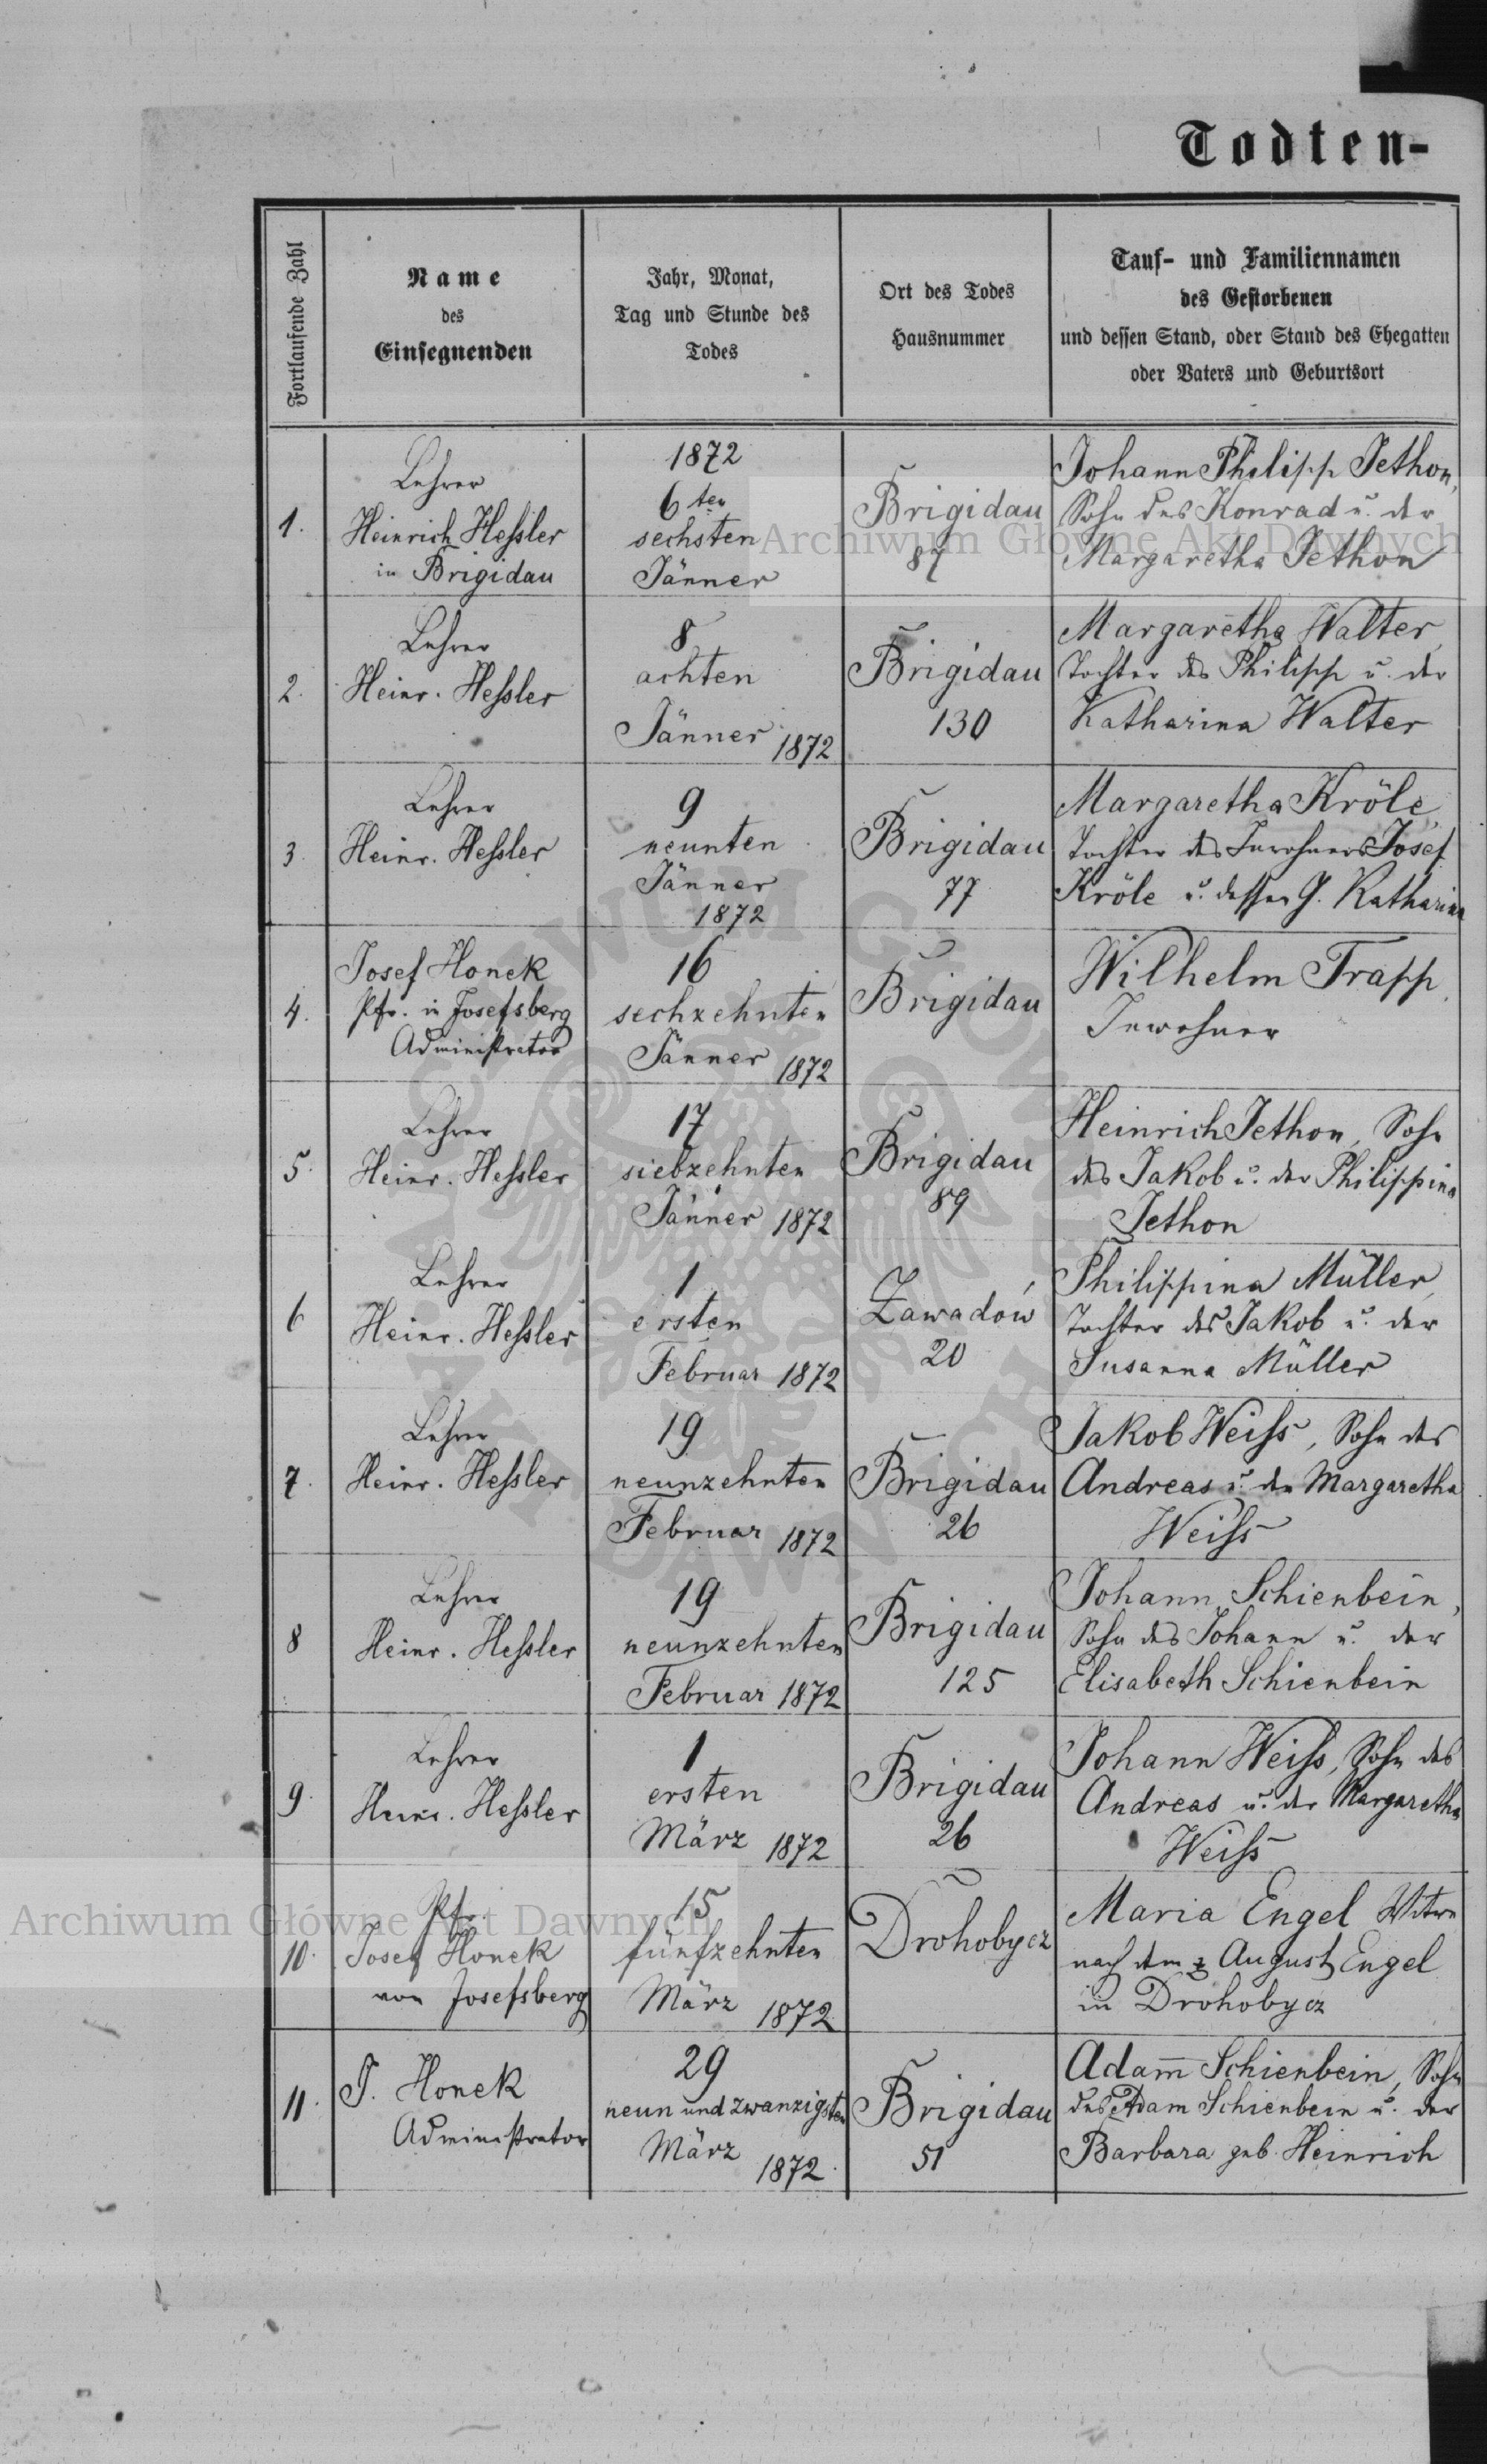 Todten-
Fortlaufende Zahl
Name
des
Einsegnenden
Jahr, Monat,
Tag und Stunde des
Todes
Ort des Todes
Hausnummer
Tauf- und Familiennamen
des Gestorbenen
und dessen Stand, oder Stand des Ehegatten
oder Vaters und Geburtsort
1.
Lehrer
Heinrich Hessler
in Brigidau
1872
6ten
sechsten
Jänner
Brigidau
87
Johann Philipp Jethon,
Sohn des Konrad u. der
Margaretha Jethon
2.
Lehrer
Heinr. Hessler
8
achten
Jänner 1872
Brigidau
130
Margaretha Walter,
Tochter des Philipp u. der
Katharina Walter
3.
Lehrer
Heinr. Hessler
9
neunten
Jänner
1872
Brigidau
77
Margaretha Kröle,
Tochter des Inwohners Josef
Kröle u. dessen G. Katharina
4.
Josef Honek
Pfr. in Josefsberg
Administrator
16
sechzehnten
Jänner 1872
Brigidau
Wilhelm Trapp,
Inwohner
5.
Lehrer
Heinr. Hessler
17
siebzehnten
Jänner 1872
Brigidau
89
Heinrich Jethon, Sohn
des Jakob u. der Philippina
Jethon
6
Lehrer
Heinr. Hessler
1
ersten
Februar 1872
Zawadów
20
Philippina Müller,
Tochter des Jakob u. der
Susanna Müller
7.
Lehrer
Heinr. Hessler
19
neunzehnten
Februar 1872
Brigidau
26
Jakob Weiss, Sohn des
Andreas u. der Margaretha
Weiss
8
Lehrer
Heinr. Hessler
19
neunzehnten
Februar 1872
Brigidau
125
Johann Schienbein,
Sohn des Johann u. der
Elisabeth Schienbein
9.
Lehrer
Heinr. Hessler
1
ersten
März 1872
Brigidau
26
Johann Weiss, Sohn des
Andreas u. der Margaretha
Weiss
10.
Pfr.
Josef Honek
von Josefsberg
15
fünfzehnten
März 1872
Drohobycz
Maria Engel Witwe
nach dem August Engel
in Drohobycz
11.
J. Honek
Administrator
29
neun und zwanzigsten
März
1872.
Brigidau
51
Adam̅ Schienbein, Sohn
des Adam Schienbein u. der
Barbara geb. Heinrich
Archiwum Główne Akt Dawnych
Archiwum Główne Akt Dawnych
ARCHIWUM GŁÓWNE AKT DAWNYCH